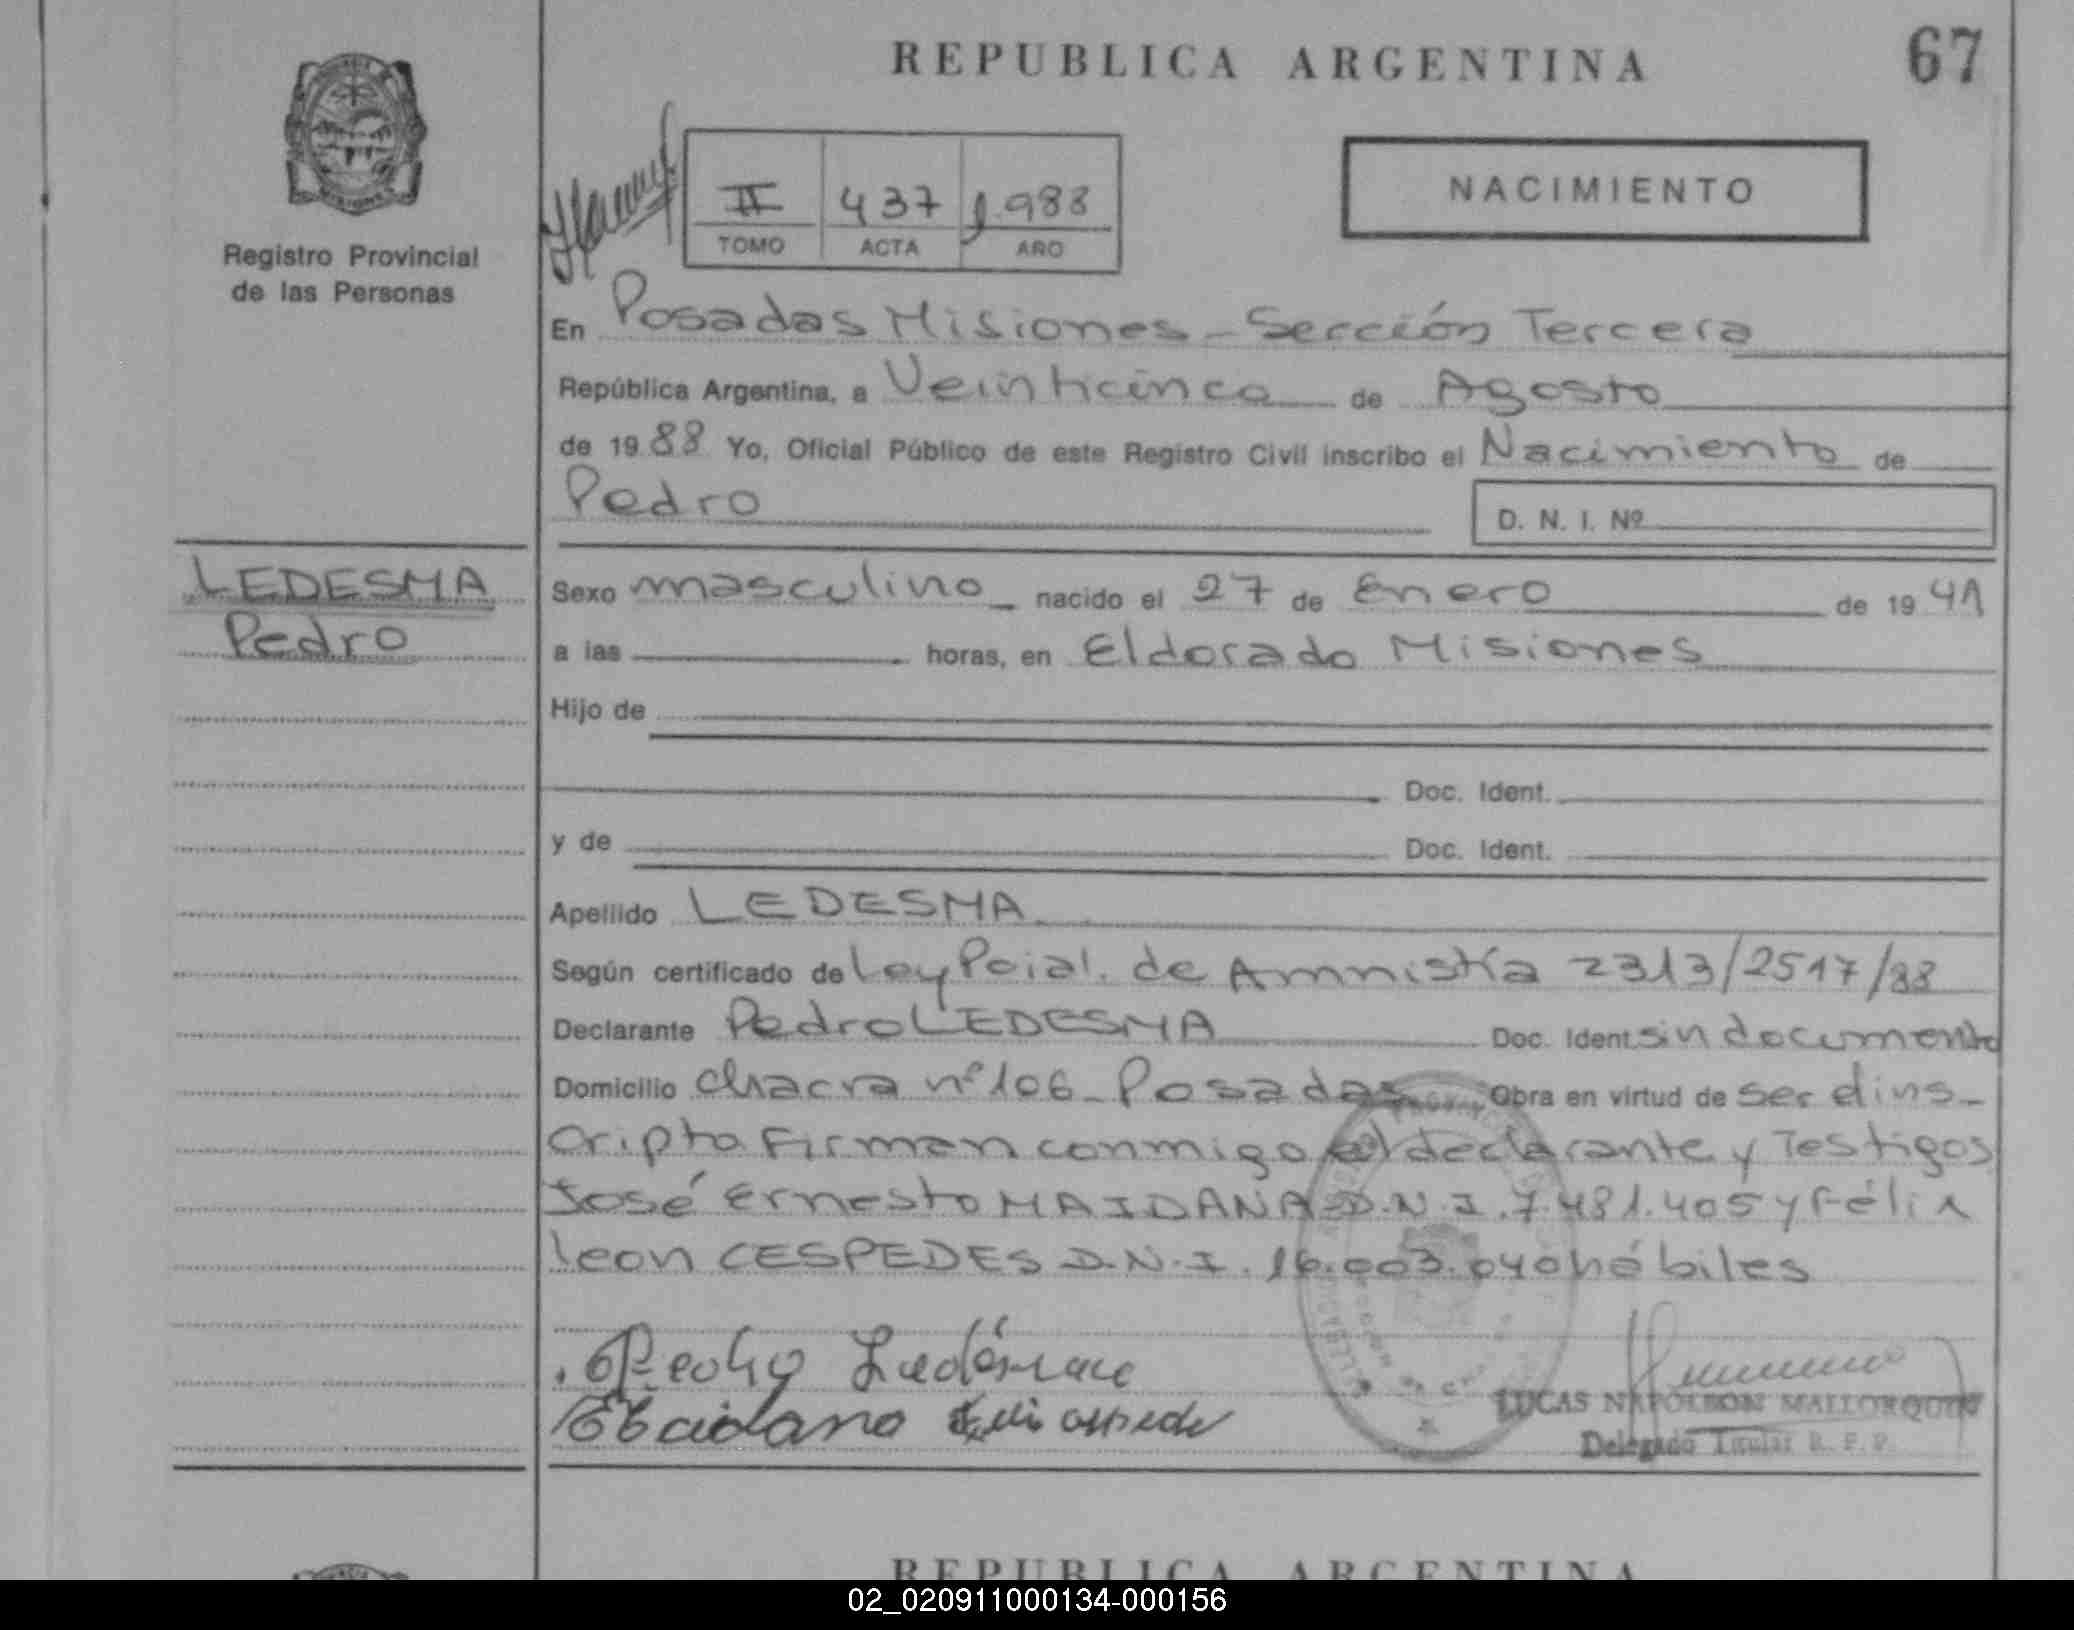 REPUBLICA ARGENTINA
67
NACIMIENTO
II 437 1.988
TOMO ACTA AÑO
Registro Provincial
de las Personas
En Posadas Misiones - Sección Tercera
República Argentina, a Veinticinco de Agosto
de 1988 Yo, Oficial Público de este Registro Civil inscribo el Nacimiento de
Pedro
D. N. I. Nº
LEDESMA
Pedro
Sexo masculino nacido el 27 de Enero de 1941
a las horas, en Eldorado Misiones
Hijo de
Doc. Ident.
y de Doc. Ident.
Apellido LEDESMA
Según certificado de Ley Pcial. de Amnistía 2313/2517/88
Declarante Pedro LEDESMA Doc. Ident. sin documento
Domicilio chacra nº 106 - Posadas Obra en virtud de ser el ins-
cripto Firman conmigo el declarante y Testigos
José Ernesto MAIDANA D.N.I. 7.481.405 y Félix
leon CESPEDES D.N.I. 16.003.040 hábiles
LUCAS NAPOLEON MALLORQUIN
Delegado Titular R. P. P.
REPUBLICA ARGENTINA
02_020911000134-000156